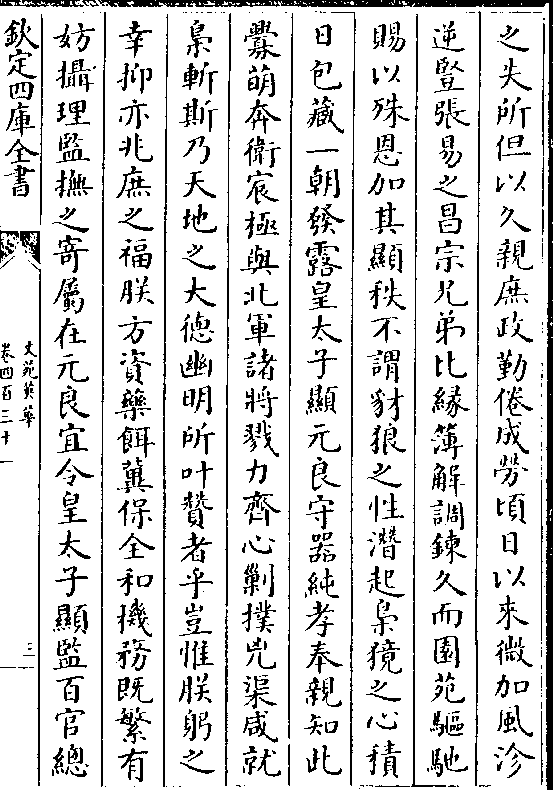 之失所但以久親庶政勤倦成勞頃日以來微加風沴
逆豎張易之昌宗兄弟比緣薄解調鍊久而園苑驅馳
賜以殊恩加其顯秩不謂豺狼之性潛起梟獍之心積
日包藏一朝發露皇太子顯元良守器純孝奉親知此
釁萌奔衛宸極與北軍諸將戮力齊心剿撲兇渠咸就
梟斬斯乃天地之大德幽明所叶贊者乎豈惟朕躬之
幸抑亦兆庶之福朕方資藥餌冀保全和機務既繁有
妨攝理監撫之寄屬在元良宜令皇太子顯監百官總
欽定四庫全書
文苑英華
卷四百三十一
三